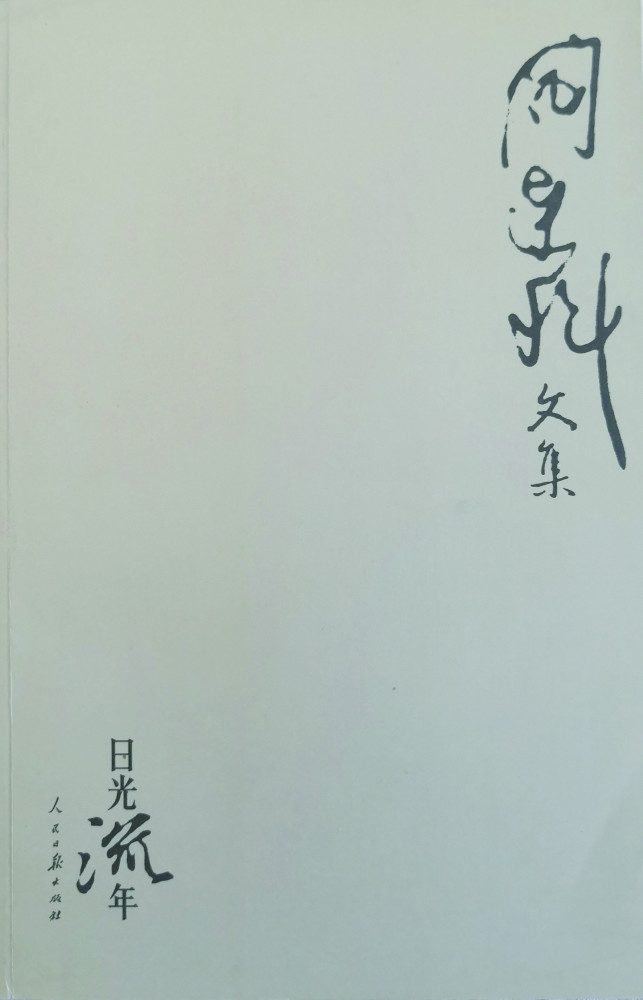 阎连科
文集
日光流年
人民日报出版社